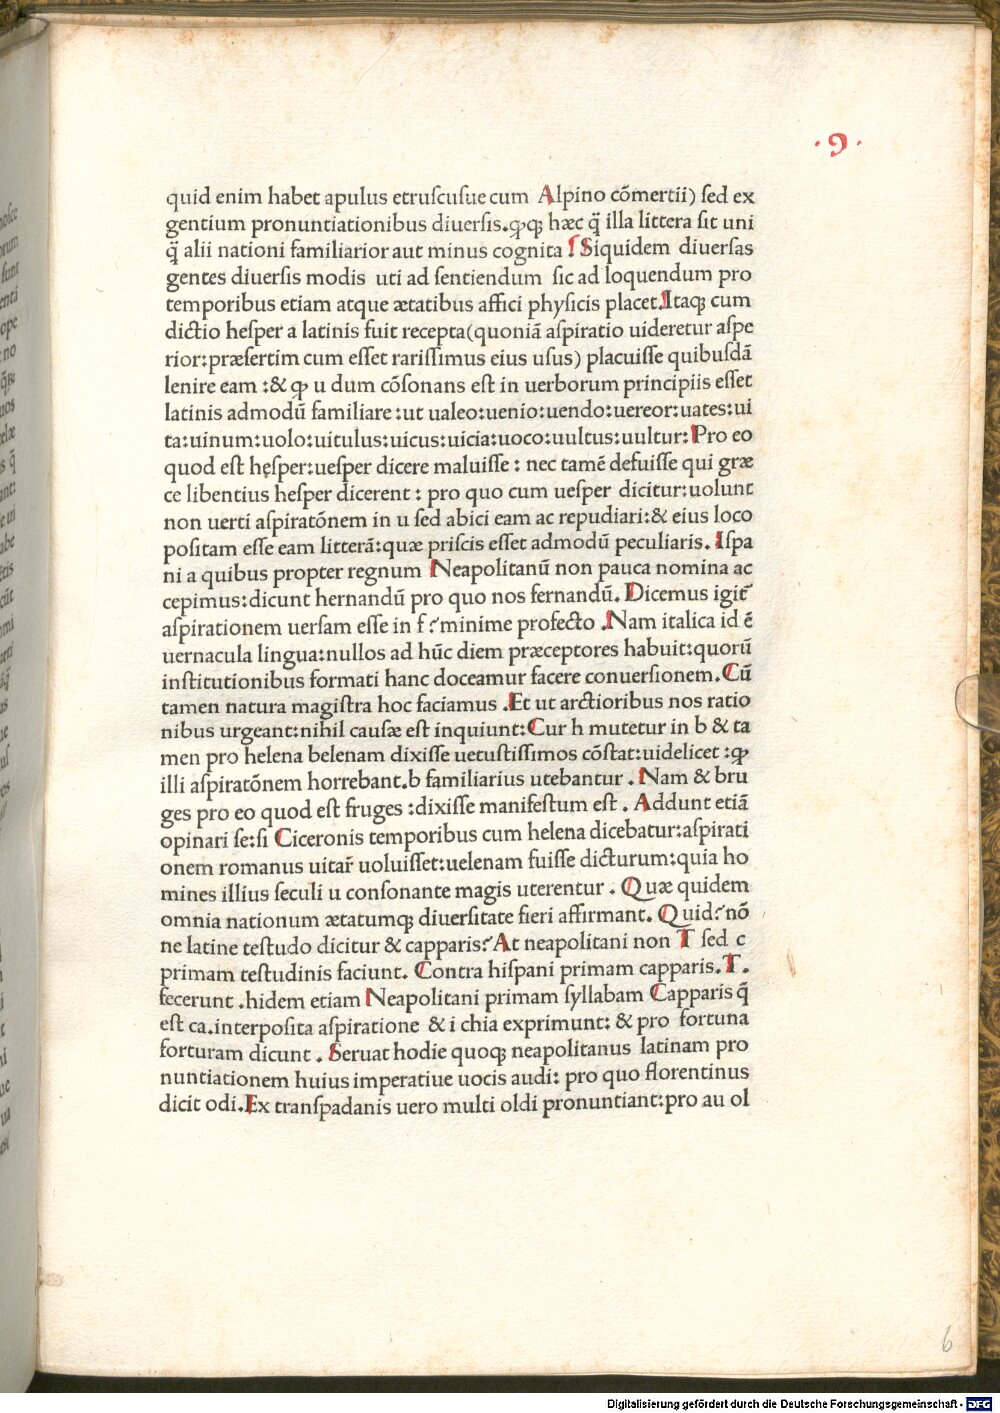 ·9·
quid enim habet apulus etruſcuſue cum Alpino cõmertii) ſed ex
gentium pronuntiationibus diuerſis.ꝙꝗ hæc q̃ illa littera ſit uni
q̃ alii nationi familiarior aut minus cognita ! Siquidem diuerſas
gentes diuerſis modis uti ad ſentiendum ſic ad loquendum pro
temporibus etiam atque ætatibus affici phyſicis placet.Itaqꝫ cum
dictio heſper a latinis fuit recepta(quoniã aſpiratio uideretur aſpe
rior:præſertim cum eſſet rariſſimus eius uſus) placuiſſe quibuſdã
lenire eam :& ꝙ u dum cõſonans eſt in uerborum principiis eſſet
latinis admodũ familiare :ut ualeo:uenio:uendo:uereor:uates:ui
ta:uinum:uolo:uitulus:uicus:uicia:uoco:uultus:uultur:Pro eo
quod eſt hęſper:ueſper dicere maluiſſe : nec tamẽ defuiſſe qui græ
ce libentius heſper dicerent : pro quo cum ueſper dicitur:uolunt
non uerti aſpiratõnem in u ſed abici eam ac repudiari:& eius loco
poſitam eſſe eam litterã:quæ priſcis eſſet admodũ peculiaris. Iſpa
ni a quibus propter regnum Neapolitanũ non pauca nomina ac
cepimus:dicunt hernandũ pro quo nos fernandũ. Dicemus igit᷑
aſpirationem uerſam eſſe in f ? minime profecto .Nam italica id ẽ
uernacula lingua:nullos ad hũc diem præceptores habuit:quorũ
inſtitutionibus formati hanc doceamur facere conuerſionem.Cũ
tamen natura magiſtra hoc faciamus .Et ut arctioribus nos ratio
nibus urgeant:nihil cauſæ eſt inquiunt:Cur h mutetur in b & ta
men pro helena belenam dixiſſe uetuſtiſſimos cõſtat:uidelicet :ꝙ
illi aſpiratõnem horrebant.b familiarius utebantur . Nam & bru
ges pro eo quod eſt fruges :dixiſſe manifeſtum eſt . Addunt etiã
opinari ſe:ſi Ciceronis temporibus cum helena dicebatur:aſpirati
onem romanus uitar̃ uoluiſſet:uelenam fuiſſe dicturum:quia ho
mines illius ſeculi u conſonante magis uterentur . Quæ quidem
omnia nationum ætatumqꝫ diuerſitate fieri affirmant. Quid?nõ
ne latine teſtudo dicitur & capparis?At neapolitani non T ſed c
primam teſtudinis faciunt. Contra hiſpani primam capparis.T.
fecerunt .hidem etiam Neapolitani primam ſyllabam Capparis q̃
eſt ca.interpoſita aſpiratione & i chia exprimunt: & pro fortuna
forturam dicunt . Seruat hodie quoqꝫ neapolitanus latinam pro
nuntiationem huius imperatiue uocis audi: pro quo florentinus
dicit odi.Ex tranſpadanis uero multi oldi pronuntiant:pro au ol
6
Digitalisierung gefördert durch die Deutsche Forschungsgemeinschaft - DFG